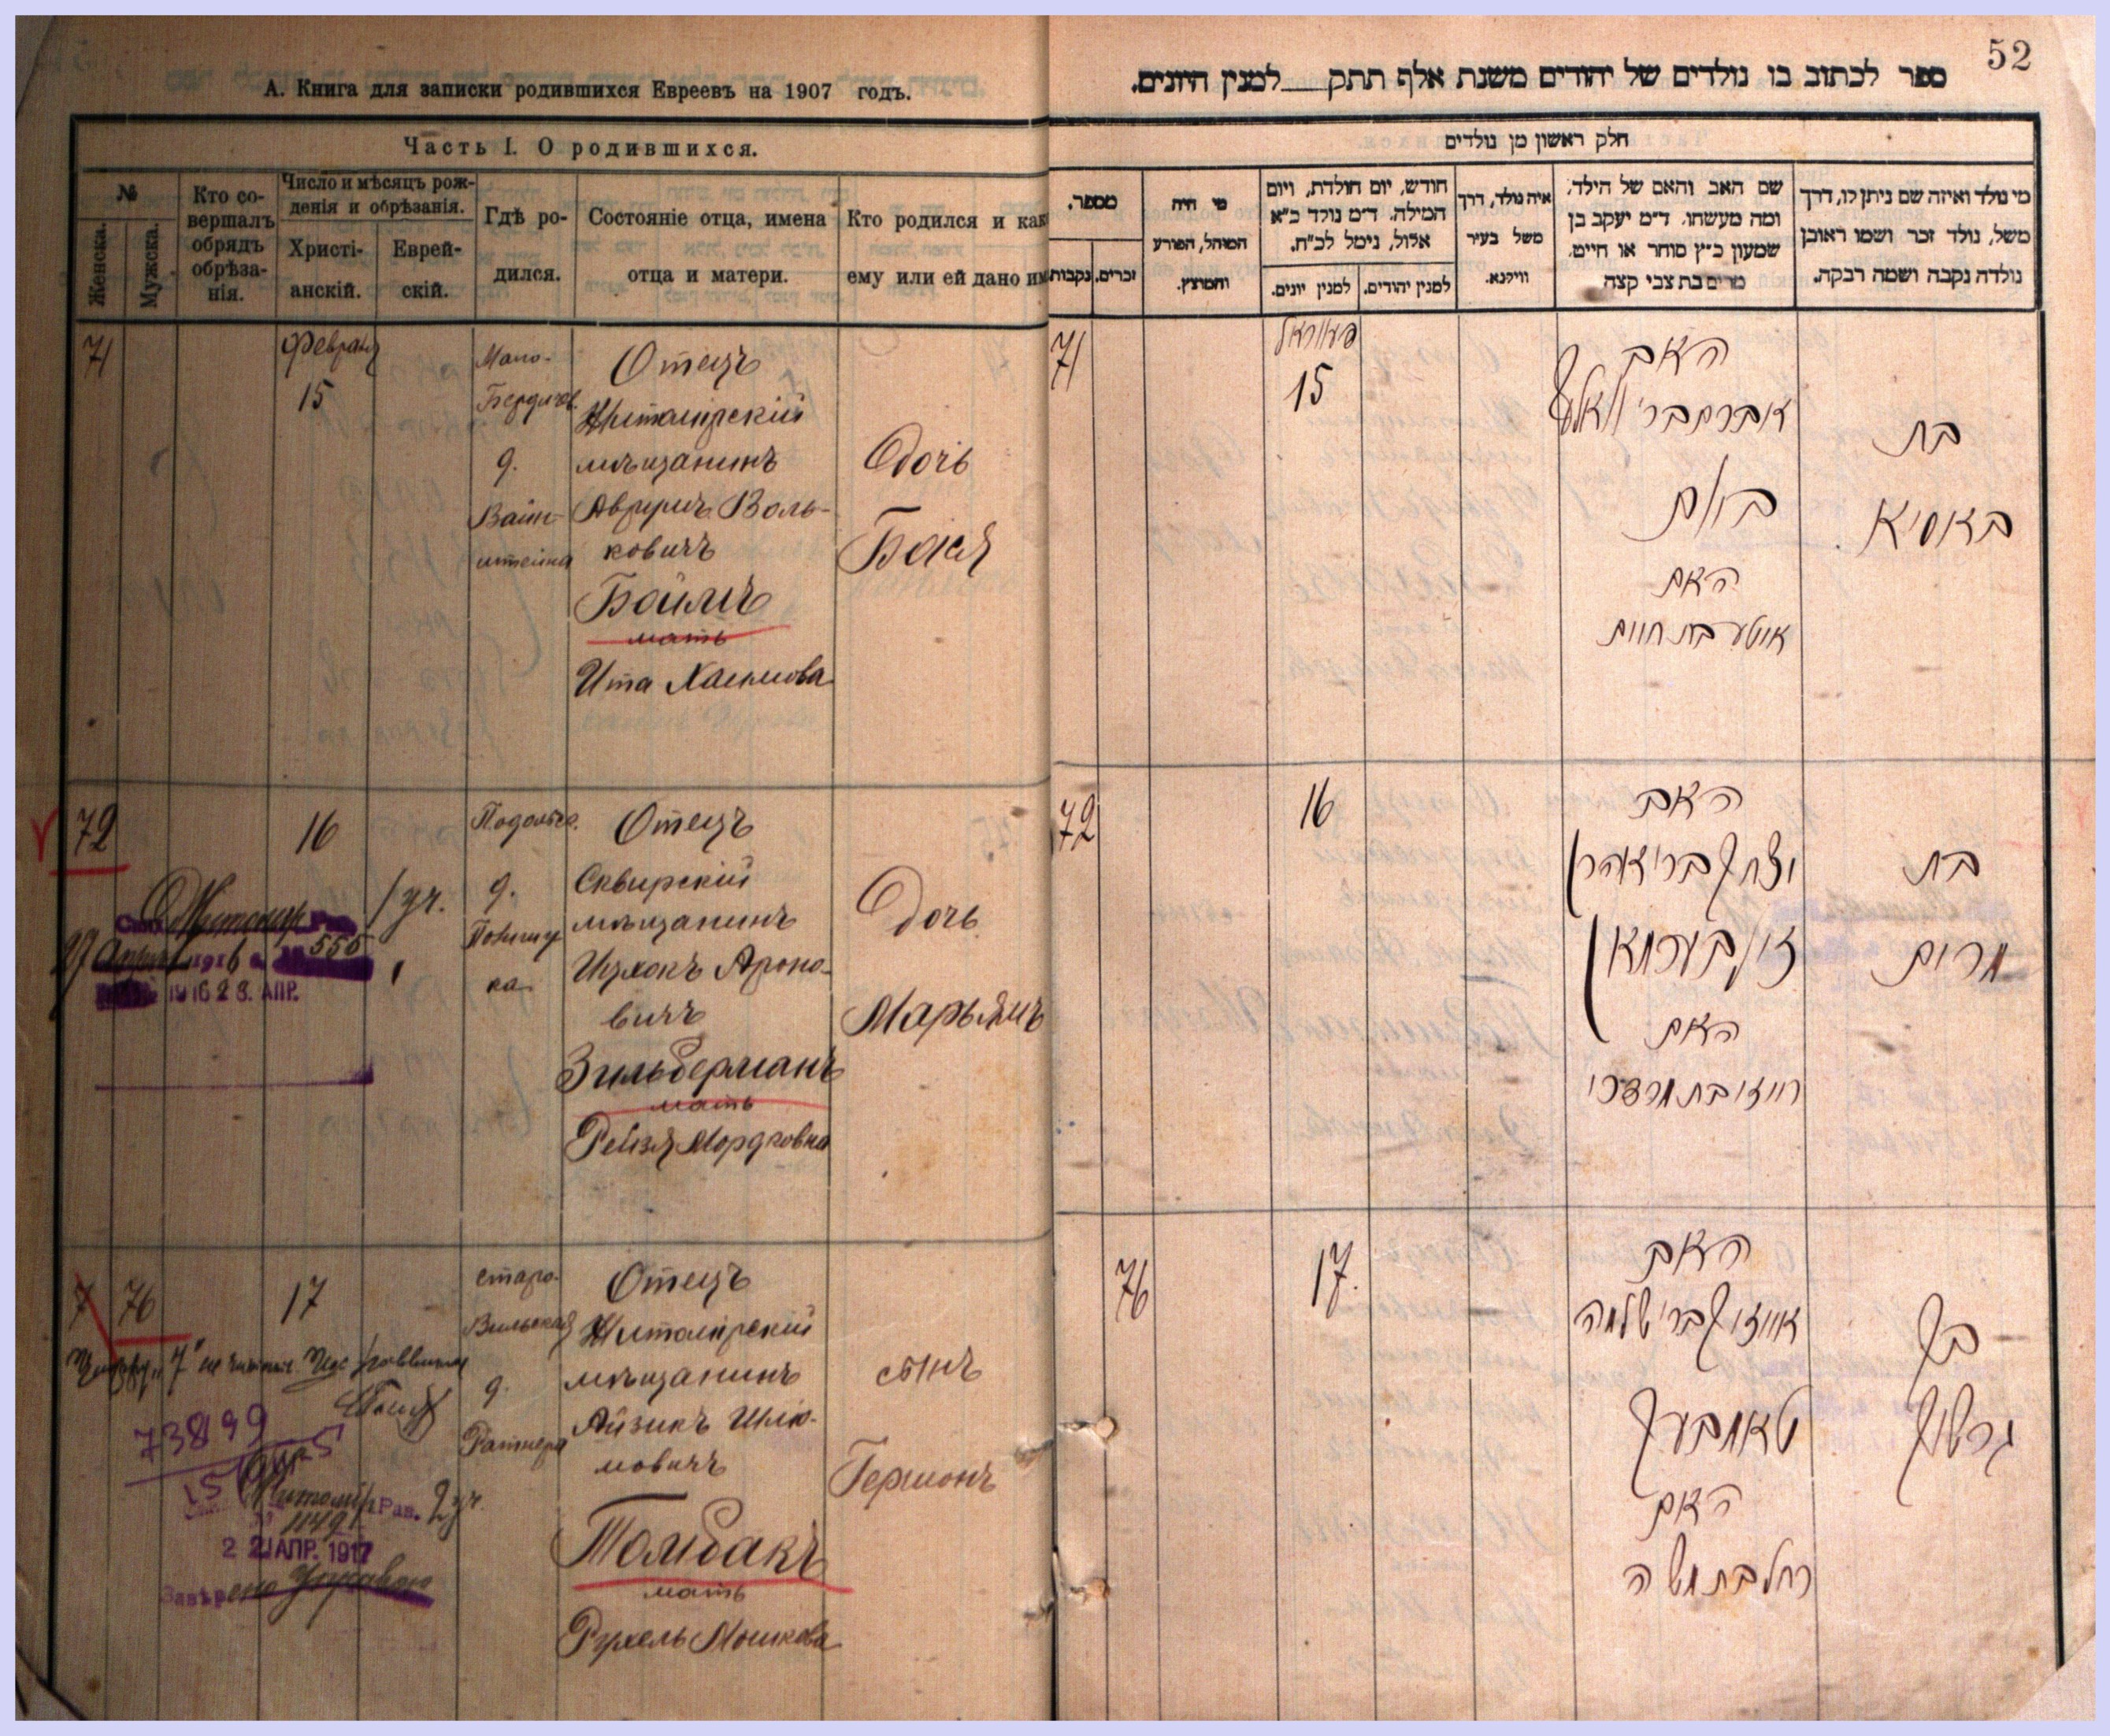 А. Книга для записки родившихся Евреевъ на 1907 годъ.
Часть I. О родившихся.
№
Женска.
Мужска.
Кто со-
вершалъ
обрядъ
обрѣза-
нія.
Число и мѣсяцъ рож-
денія и обрѣзанія.
Христі-
анскій.
Еврей-
скій.
Гдѣ ро-
дился.
Состояніе отца, имена
отца и матери.
Кто родился и как
ему или ей дано им
71
Февраля
15
Мало-
Бердичев.
д.
Вайн-
штейна
Отецъ
Житомірскій
мѣщанинъ
Аврумъ Воль-
ковичъ
Боймъ
мать
Ита Хаимова
Дочь
Бася
72
16
1 уч.
555
1916 28. АПР.
Подольс.
д.
Отецъ
Сквирскій
мѣщанинъ
Ицхокъ Ароно-
вичъ
Зильберманъ
мать
Рейзя Мордковна
Дочь
Марьямъ
7 76
17
Цифру „7“ не читать
73899
Рав. 2 уч.
22 АПР. 1917
Старо-
Вильская
д.
Ратнера
Отецъ
Житомірскій
мѣщанинъ
Айзикъ Шлё-
мовичъ
Томбакъ
мать
Рухель Мошкова
сынъ
Гершонъ
52
ספר לכתוב בו נולדים של יהודים משנת אלף תתק__למנין היונים.
חלק ראשון מן נולדים
מספר.
נקבות
זכרים.
מי היה
המוהל, הפורע
והמוצץ.
חודש, יום הולדת, ויום
המילה. ד״מ נולד כ״א
אלול, נימל לכ״ח.
למנין יונים.
למנין יהודים.
איה נולד, דרך
משל בעיר
ווילנא.
שם האב והאם של הילד,
ומה מעשהו. ד״מ יעקב בן
שמעון כ״ץ סוחר או חייט.
מרים בת צבי קצה
מי נולד ואיזה שם ניתן לו, דרך
משל, נולד זכר ושמו ראובן
נולדה נקבה ושמה רבקה.
71
פעווראל
15
האב
אברהם בר׳ וואלף
בוים
האם
איטע בת חיים
בת
באסיא
72
16
האב
יצחק בר׳ אהרן
זילבערמאן
האם
רייזי בת מרדכי
בת
מרים
76
17.
האב
אייזיק בר׳ שלמה
טאמבעק
האם
רחל בת משה
בן
גרשון